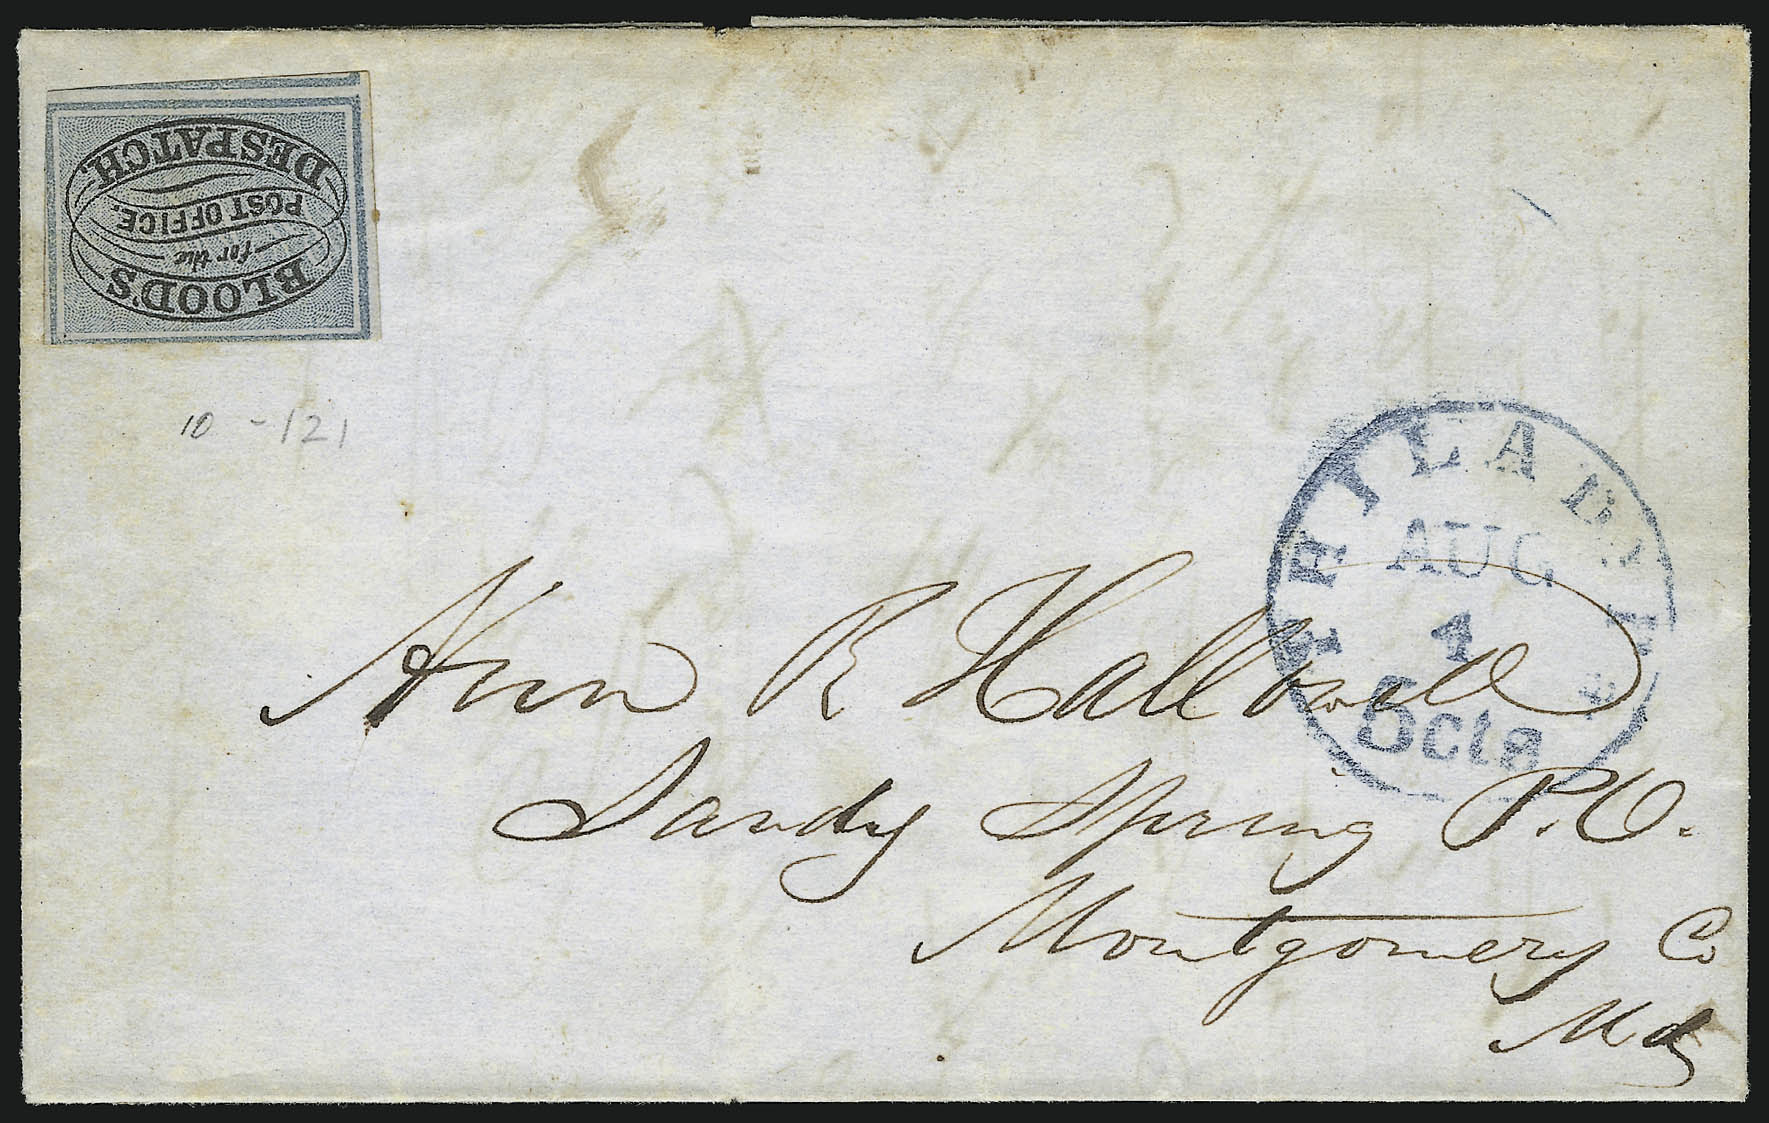 BLOOD'S
for the
POST OFFICE.
DESPATCH.
10 - 121
PHILADELPHIA
AUG
4
5cts
Ann R Hallowell
Sandy Spring P.O.
Montgomery Co
Md